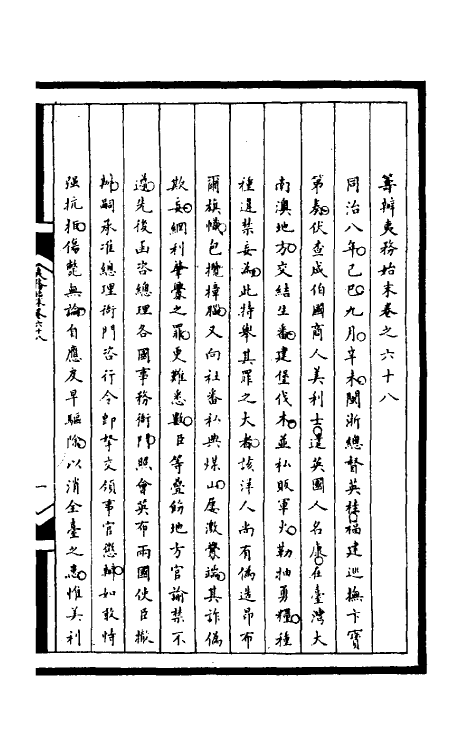 籌辦夷務始末卷之六十八
同治八年己巳九月辛未閩浙總督英桂福建巡撫卞寶
第奏伏查咸伯國商人美利士還英國人名康在臺灣大
南澳地方交結生番建堡伐木並私販軍火勒抽勇糧種
種違禁妄為此特舉其罪之大者該洋人尚有偽造昂布
爾旗幟包攬樟腦又向社番私典煤山屢激釁端其詐偽
欺妄網利肇釁之罪更難悉數臣等疊飭地方官諭禁不
遵先後函咨總理各國事務衙門照會英布兩國使臣撤
辦嗣承准總理衙門咨行令即拏交領事官懲辦如敢恃
强抗拒傷斃無論自應及早驅除以消全臺之患惟美利
夷務始末卷六十八
一